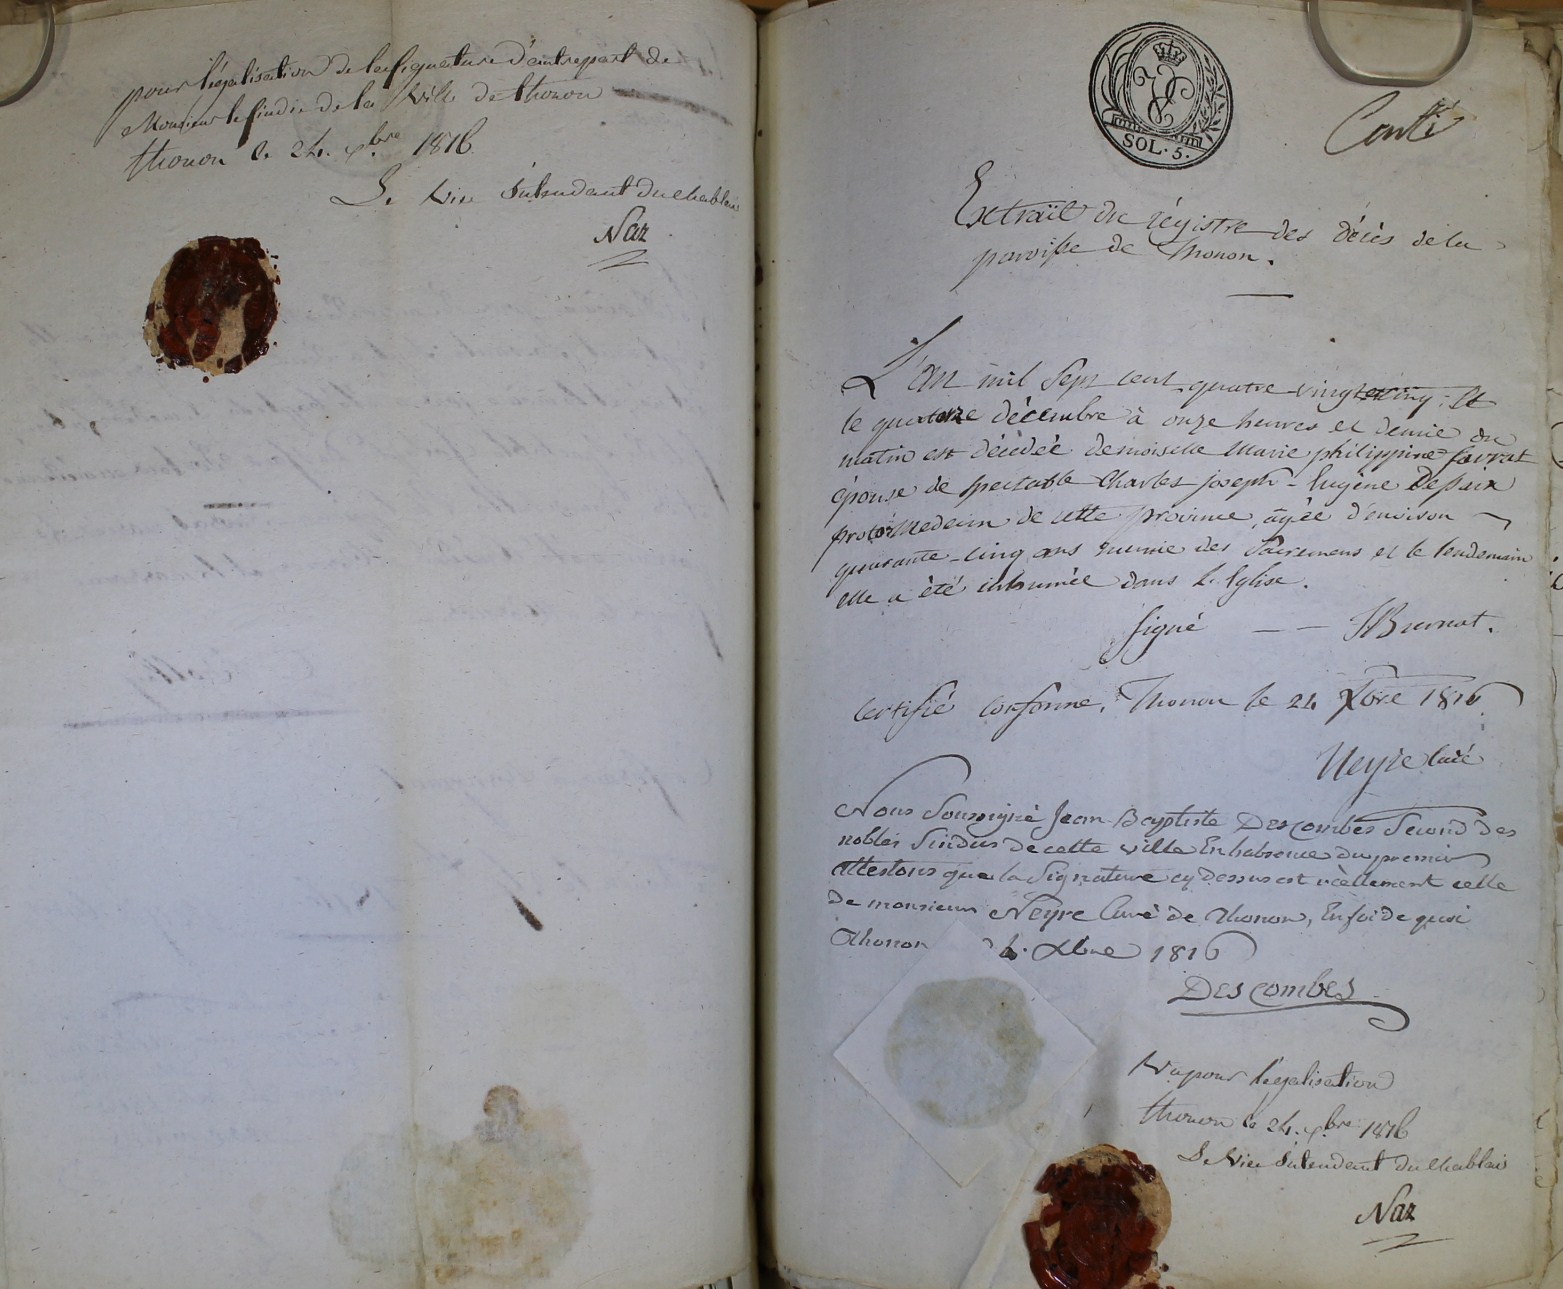 pour légalisation de la signature d'autre part de
Monsieur le sindic de la ville de thonon
thonon le 24. xbre 1816
Le Vice Intendant du chablais
Naz
SOL. 5.
Extrait du régistre des décès de la
paroisse de Thonon.
L'an mil sept cent quatre vingt cinq: et
le quatorze décembre à onze heures et demie du
matin est décédée demoiselle Marie philippine favrat
épouse de spectable Charles joseph-Eugène Dessaix
proto-Médecin de cette province, agée d'environ
quarante-cinq ans munie des Sacremens et le lendemain
elle a été inhumée dans L'Eglise.
signé —— Brunat.
Certifié conforme, Thonon le 24 Xbre 1816
Neyre Curé
Nous Soussigné Jean-Baptiste Descombes Second des
nobles Sindics de cette ville En l'absence du premier
attestons que la Signature cy dessus est réellement celle
de monsieur Neyre Curé de Thonon, En foi de quoi
Thonon 24. Xbre 1816
Descombes
Vu pour légalisation
thonon le 24. xbre 1816
Le Vice Intendant du chablais
Naz